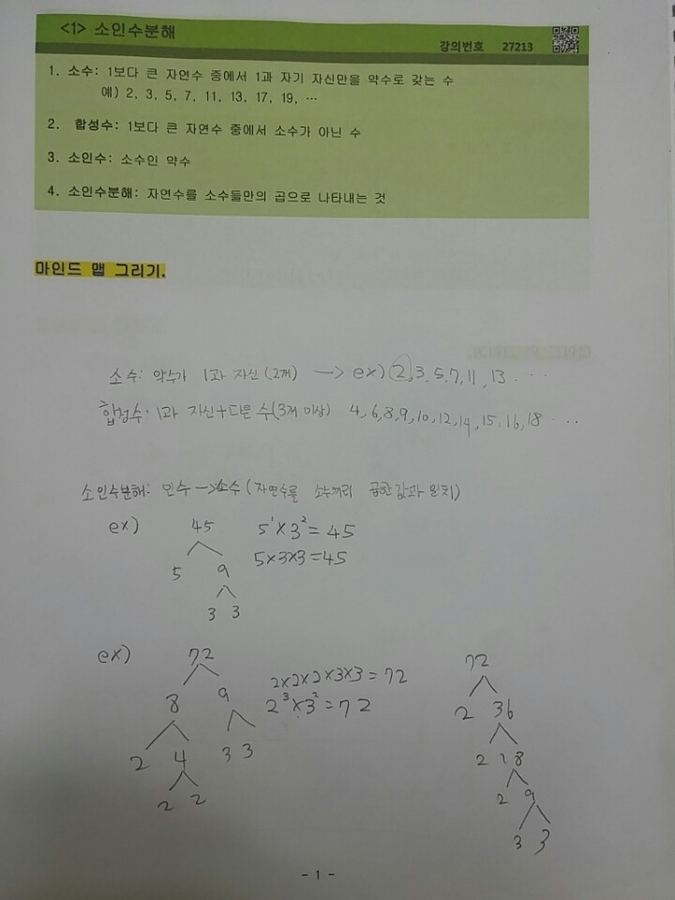 <1> 소인수분해
강의번호 27213
1. 소수: 1보다 큰 자연수 중에서 1과 자기 자신만을 약수로 갖는 수
예) 2, 3, 5, 7, 11, 13, 17, 19, …
2. 합성수: 1보다 큰 자연수 중에서 소수가 아닌 수
3. 소인수: 소수인 약수
4. 소인수분해: 자연수를 소수들만의 곱으로 나타내는 것
마인드 맵 그리기.
소수: 약수가 1과 자신(2개) → ex) 2, 3, 5, 7, 11, 13 ...
합성수: 1과 자신+다른 수(3개 이상) 4, 6, 8, 9, 10, 12, 14, 15, 16, 18 ...
소인수분해: 인수→소수 (자연수를 소수끼리 곱한값과 일치)
ex) 45 5¹×3²=45
5 9 5×3×3=45
3 3
ex) 72 2×2×2×3×3=72
8 9 2³×3²=72
2 4 3 3
2 2
72
2 36
2 18
2 9
3 3
- 1 -